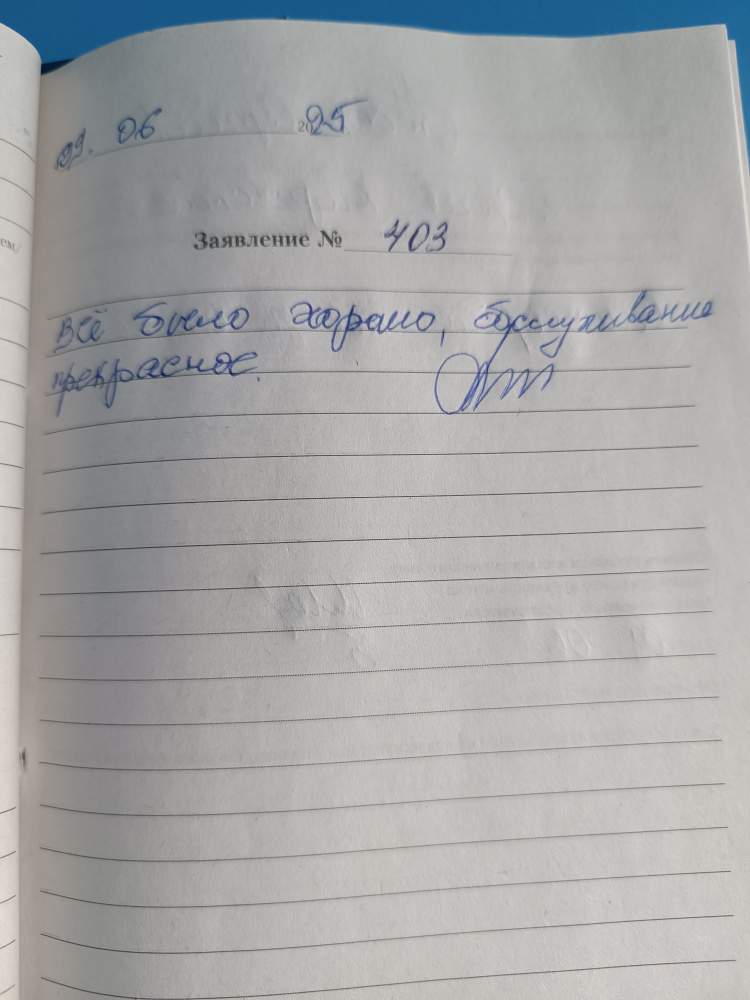 29. 06 2025
Заявление № 403
Всё было хорошо, обслуживание
прекрасное.